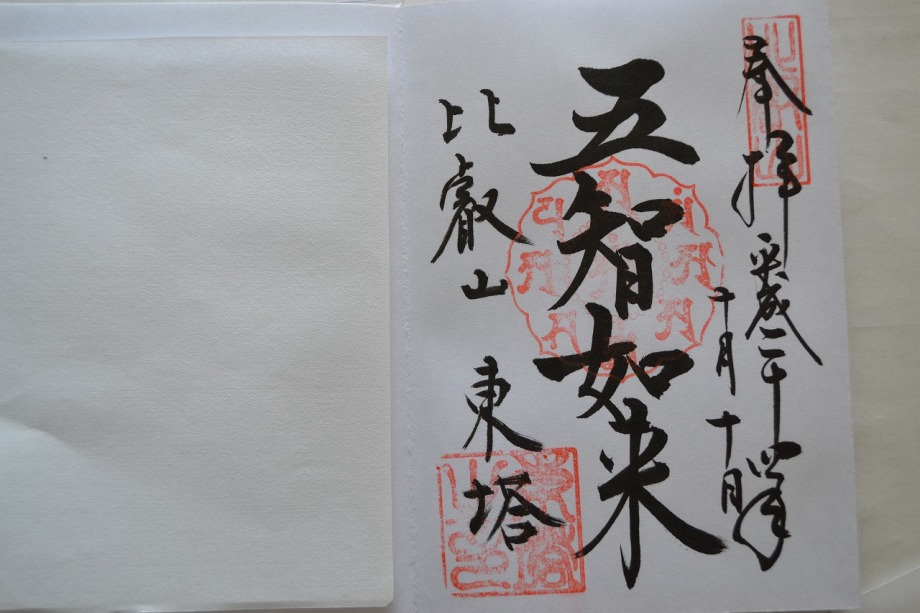 奉拝 平成二十四年
十月十日
五智如来
比叡山 東塔